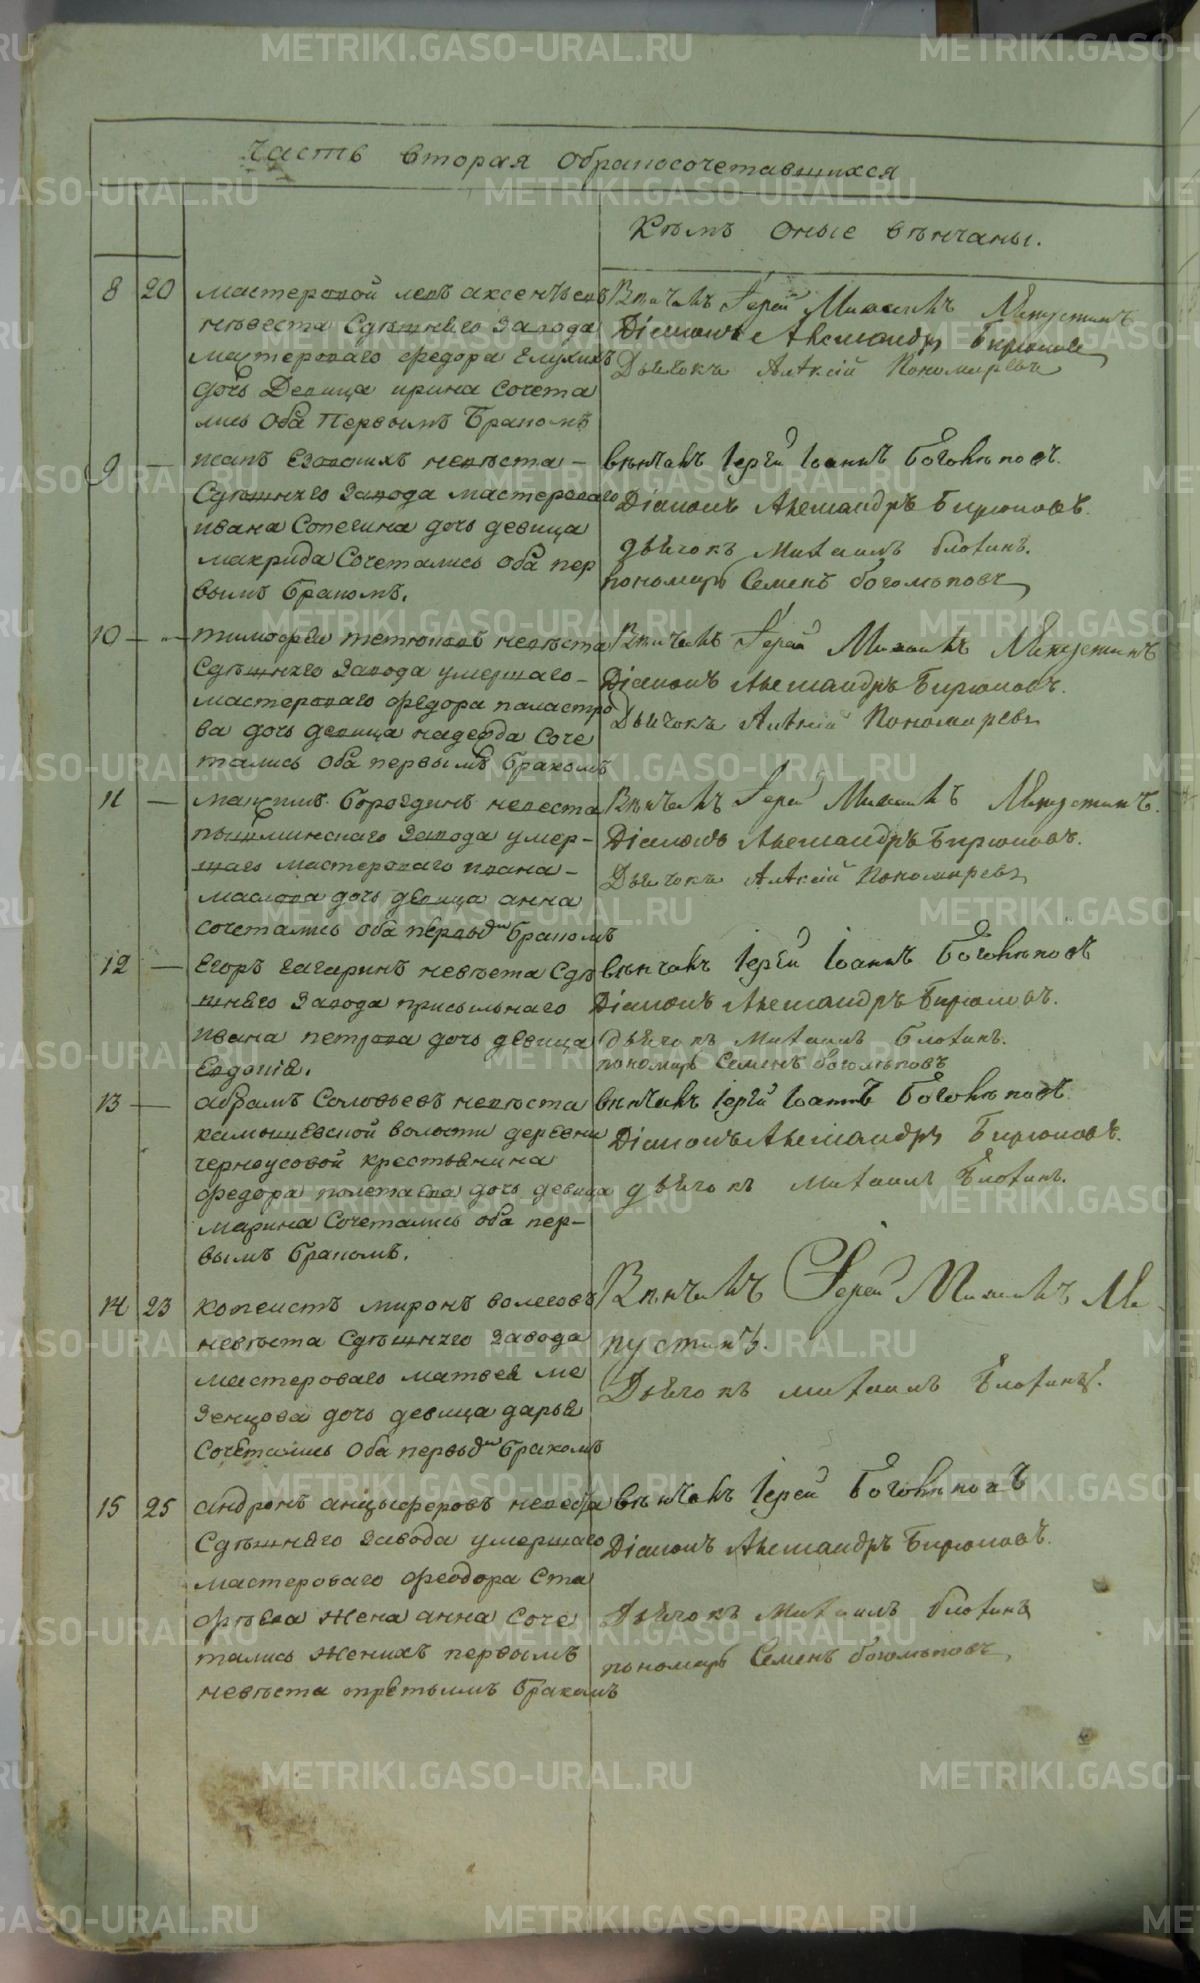 Часть вторая обракосочетавшихся
Кѣмъ оные вѣнчаны.
8 20 мастеровой левъ аксеньевъ
невеста Сдѣшнѣго Завода
мастероваго федора Елухихъ
дочь Девица ирина Сочета
лись Оба Первымъ Бракомъ
Вѣнчалъ Іерей Михаилъ Мапустинъ
Діаконъ Александръ Бирюковъ
Дьячокъ Алѣксій Пономаревъ
9 — невѣста —
Сдѣшнѣго Завода мастероваго
ивана Сопегина дочь девица
макрида Сочетались оба пер
вымъ бракомъ.
вѣнчалъ Іерей Іоаннъ Боголѣповъ.
Діаконъ Александръ Бирюковъ.
дьячокъ Михаилъ блохинъ.
пономарь Семенъ боголѣповъ
10 — тимофей тетюковъ невѣста
Сдѣшнѣго Завода умершаго
мастероваго федора каластро
ва дочь девица надежда Соче
тались оба первымъ бракомъ
Вѣнчалъ Іерей Михаилъ Мапустинъ
Діаконъ Александръ Бирюковъ.
Дьячокъ Алѣксій Пономаревъ
11 — максимъ бороздинъ невеста
пышминскаго Завода умер-
шаго мастероваго ивана
маслова дочь девица анна
сочетались оба первым бракомъ
Вѣнчалъ Іерей Михаилъ Мапустинъ.
Діаконъ Александръ Бирюковъ.
Дьячокъ Алѣксій Пономаревъ
12 — Егоръ гагаринъ невѣста Сдѣ
шнѣго Завода присыльнаго
ивана петрова дочь девица
Евдокия.
вѣнчалъ Іерей Іоаннъ Боголѣповъ
Діаконъ Александръ Бирюковъ.
дьячокъ Михаилъ Блохинъ.
пономарь Семенъ боголѣповъ
13 — абрамъ Соловьевъ невѣста
камышевской волости деревни
черноусовой крестьянина
федора полетаева дочь девица
марина Сочетались оба пер-
вымъ бракомъ.
вѣнчалъ Іерей Іоаннъ Боголѣповъ.
Діаконъ Александръ Бирюковъ.
дьячокъ Михаилъ Блохинъ.
14 23 копеистъ миронъ волеговъ
невѣста Сдѣшнѣго Завода
мастероваго матвея ме
зенцова дочь девица дарья
Сочетались Оба первым бракомъ
Вѣнчалъ Іерей Михаилъ Ма-
пустинъ.
Дьячокъ михаилъ Блохинъ.
15 25 андронъ анцыферовъ невеста
Сдѣшнѣго Завода умершаго
мастероваго феодора Ста
фѣева жена анна Соче
тались Женихъ первымъ
невѣста третьимъ бракомъ
вѣнчалъ Іерей Боголѣповъ
Діаконъ Александръ Бирюковъ.
Дьячокъ Михаилъ блохинъ
пономарь Семенъ боголѣповъ,
METRIKI.GASO-URAL.RU